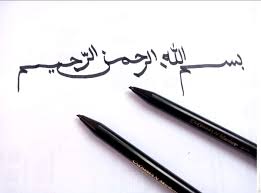 بسم اللّٰهِ الرحمن الرّحيم